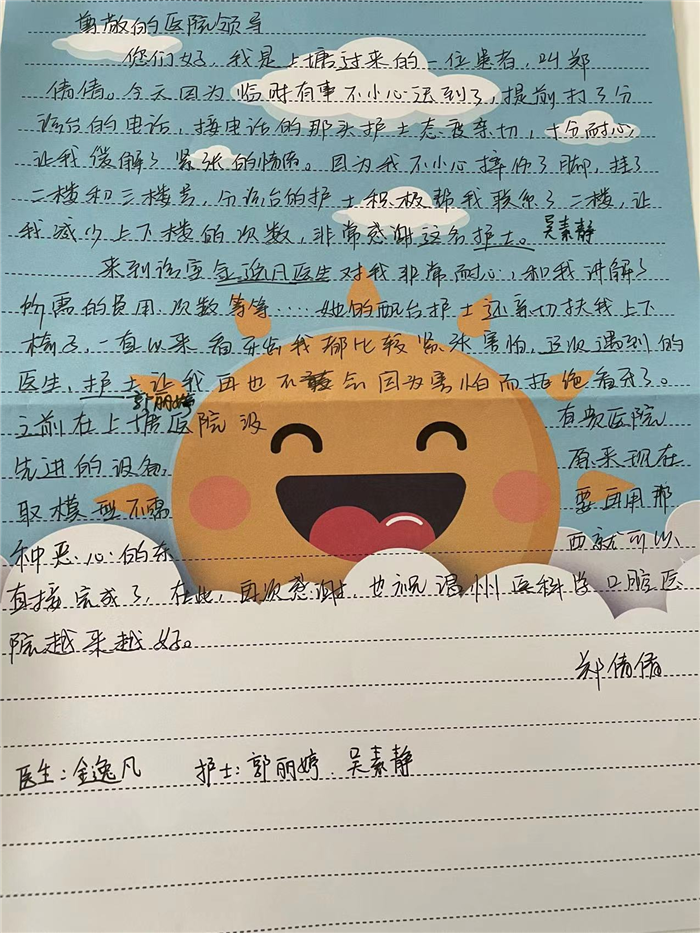 尊敬的医院领导
您们好，我是上塘过来的一位患者，叫郑
倩倩。今天因为临时有事不小心迟到了，提前打了分
诊台的电话，接电话的那头护士态度亲切，十分耐心
让我缓解了紧张的情绪。因为我不小心摔伤了脚，挂了
二楼和三楼号，分诊台的护士积极帮我联系了二楼，让
我减少上下楼的次数，非常感谢这名护士。吴素静
来到诊室金逸凡医生对我非常耐心，和我讲解了
所需的费用、次数等等……她的配台护士还亲切扶我上下
椅子，一直以来看牙齿我都比较紧张害怕，这次遇到的
医生，护士让我再也不会因为害怕而拒绝看牙了。
郭丽婷
之前在上塘医院没有贵医院
先进的设备，原来现在
取模型不需要再用那
种恶心的东西就可以
直接完成了，在此，再次感谢，也祝温州医科学口腔医
院越来越好。
郑倩倩
医生：金逸凡 护士：郭丽婷、吴素静